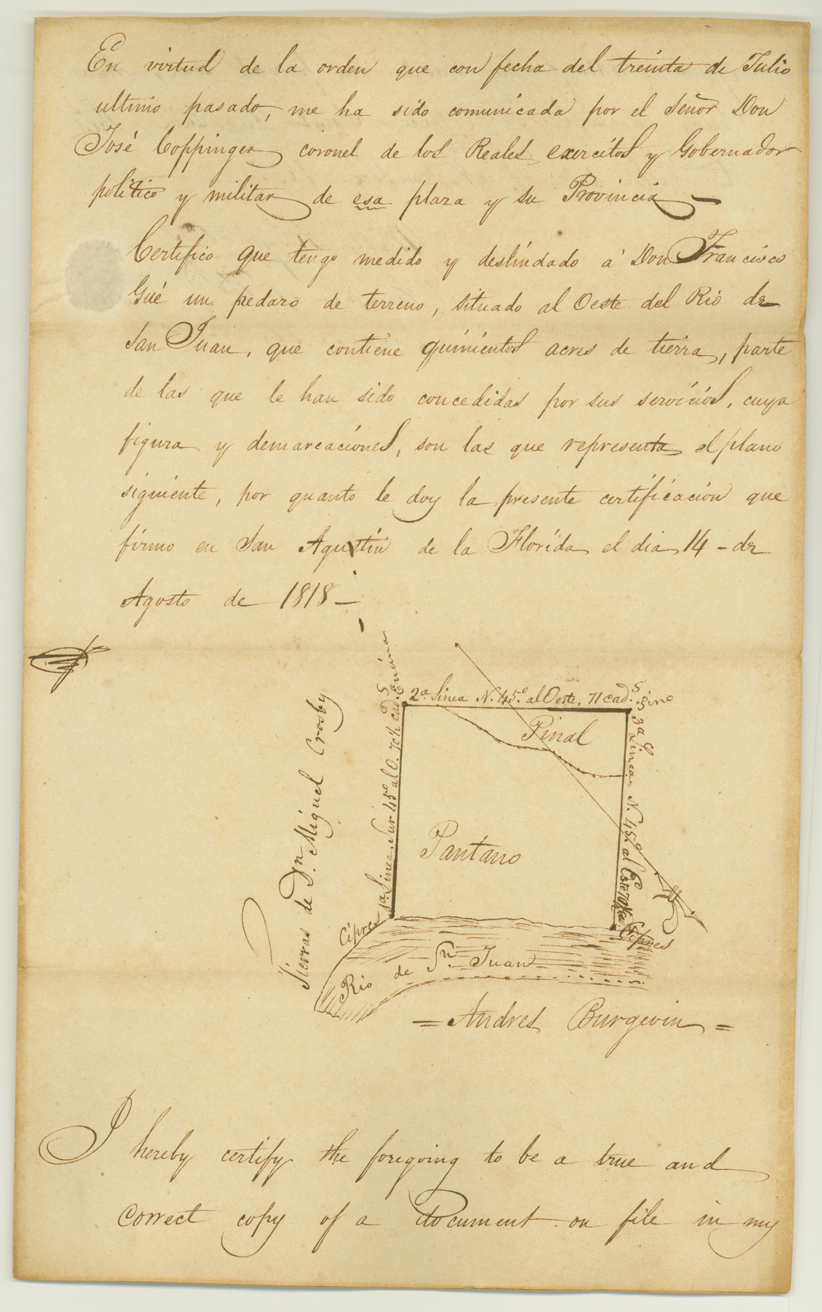 En virtud de la orden que con fecha del treinta de Julio
ultimo pasado, me ha sido comunicada por el Señor Don
José Coppinger coronel de los Reales exercitos y Gobernador
politico y militar de esa plaza y su Provincia —
Certifico que tengo medido y deslindado á Don Francisco
Gué un pedazo de terreno, situado al Oeste del Rio de
San Juan, que contiene quinientos acres de tierra, parte
de las que le han sido concedidas por sus servicios, cuya
figura y demarcaciones, son las que representa el plano
siguiente, por quanto le doy la presente certificacion que
firmo en San Agustin de la Florida el dia 14 - de
Agosto de 1818 —
Tierras de Dn. Miguel Crosby
1a. Linea Sur 45° al O. 70½ cad.s Encina
2a. Linea N. 45° al Oeste, 71 cad.s
Pino
3a. Linea N. 45° al
Pinal
Pantano
Cipres
Cipres
Rio de Sn. Juan
= Andres Burgevin =
I hereby certify the foregoing to be a true and
correct copy of a document on file in my